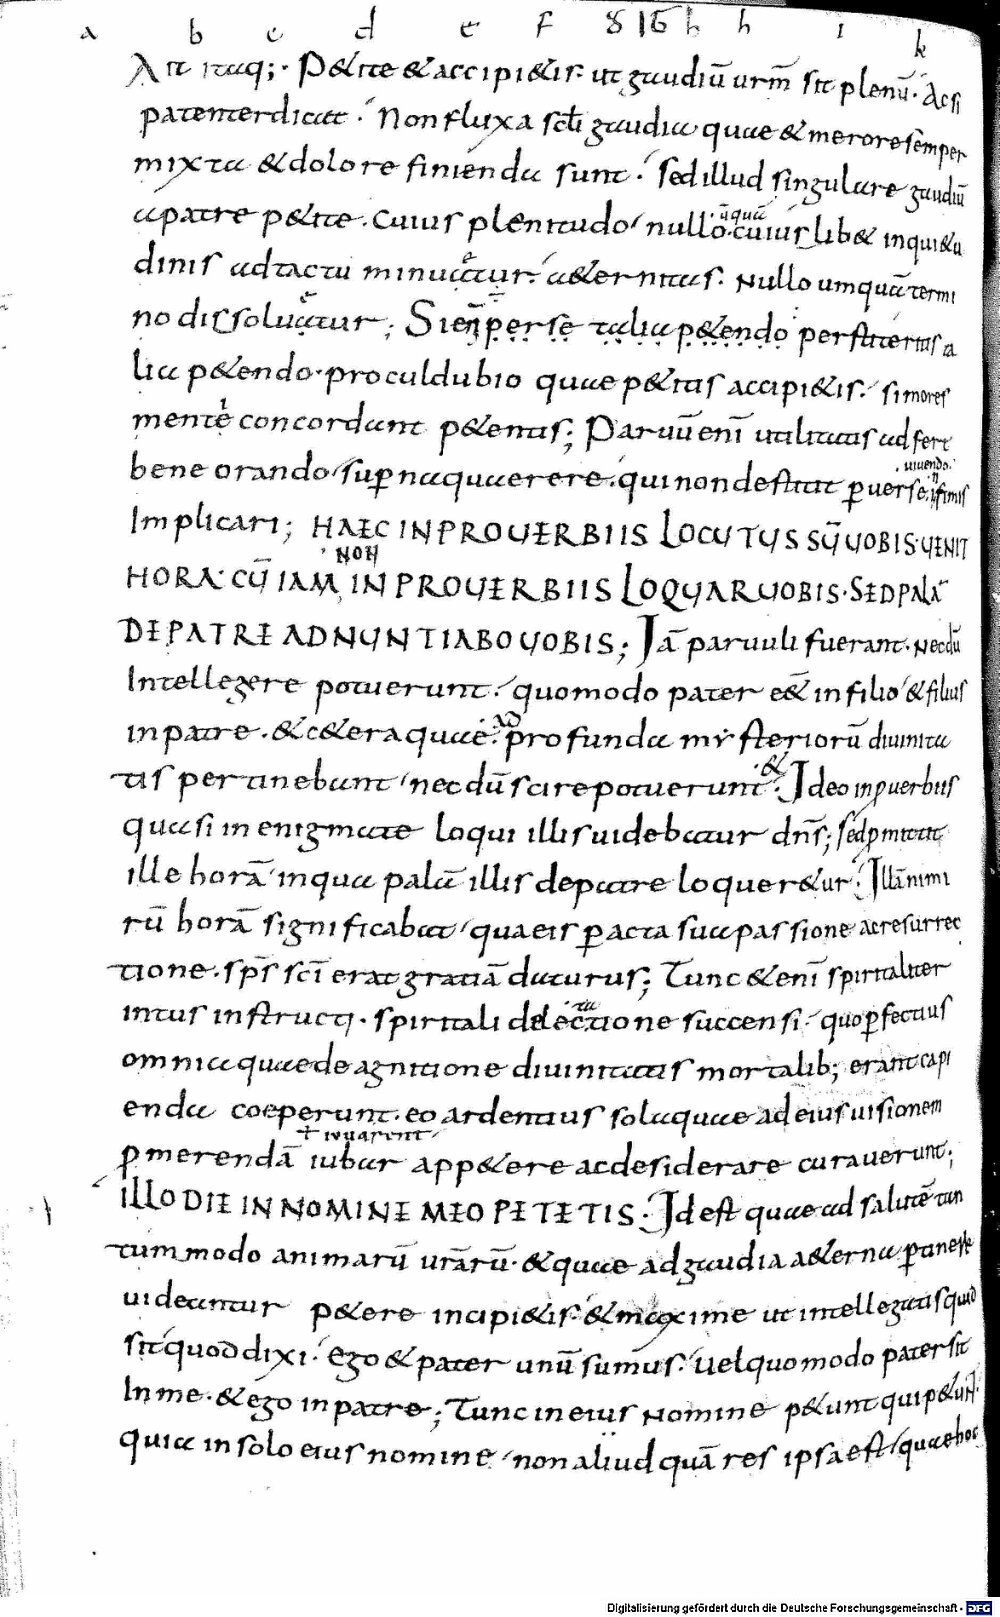 a b c d e f 8 16 h h i k
Ait itaq;· P&ite & accipi&is· ut gaudiū urm̄ sit plenū· Acsi
patenter dicat· Non fluxa scłi gaudia quae & merore semper
mixta & dolore finienda sunt· sed illud singulare gaudiū
a patre p&ite· cuius plenitudo nullo cuiuslib& inqui&u
ūquā
dinis adtactu minuatur· a&ernitas· Nullo umquā termi
no dissoluatur; Si enī per se talia p&endo perstiteritis ta
lia p&endo· procul dubio quae p&itis accipi&is· si mores
mente concordant p&entis; Paruū enī utilitatis adfert
bene orando superna quaerere· qui non destitit puerse īfimis
uiuendo·
Implicari; HAEC IN PROUERBIIS LOCUTUS SŪ UOBIS· UENIT
NON
HORA· CŪ IAM IN PROUERBIIS LOQUAR UOBIS· SED PALĀ
DE PATRE ADNUNTIABO UOBIS; Iā paruuli fuerant· necdū
Intellegere potuerunt· quomodo pater e&̄ in filio & filius
in patre· & c&era quae· profunda mysteriorū diuinita
AD
tis pertinebant necdū scire potuerunt· Ideo in puerbiis
&
quasi in enigmate loqui illis uidebatur dn̄s; sed pmittit
ille horā inqua palā illis de patre loquer&ur· Illā nimi
rū horā significabat qua eis pacta sua passione ac resurrec
tione· sp̄s sc̄i erat gratiā daturus; Tunc &enī spiritaliter
intus instructi· spiritali delectione succensi· quo pfectius
ta
omnia quae de agnitione diuinitatis mortalib; erant capi
enda coeperunt· eo ardentius sola quae ad eius uisionem
+ iuuarent
p merendā iubar app&ere ac desiderare curauerunt;
ILLO DIE IN NOMINE MEO PETETIS· Id est quae ad salutē tan
tummodo animarū urārū· & quae ad gaudia a&erna ptinere
uideantur p&ere incipi&is· & maxime ut intellegatis quid
sit quod dixi· ego & pater unū sumus· uel quomodo pater sit
In me· & ego in patre; Tunc in eius nomine p&unt qui p&unt·
quia in solo eius nomine· non aliud quā res ipsa est quae hoc
Digitalisierung gefördert durch die Deutsche Forschungsgemeinschaft - DFG